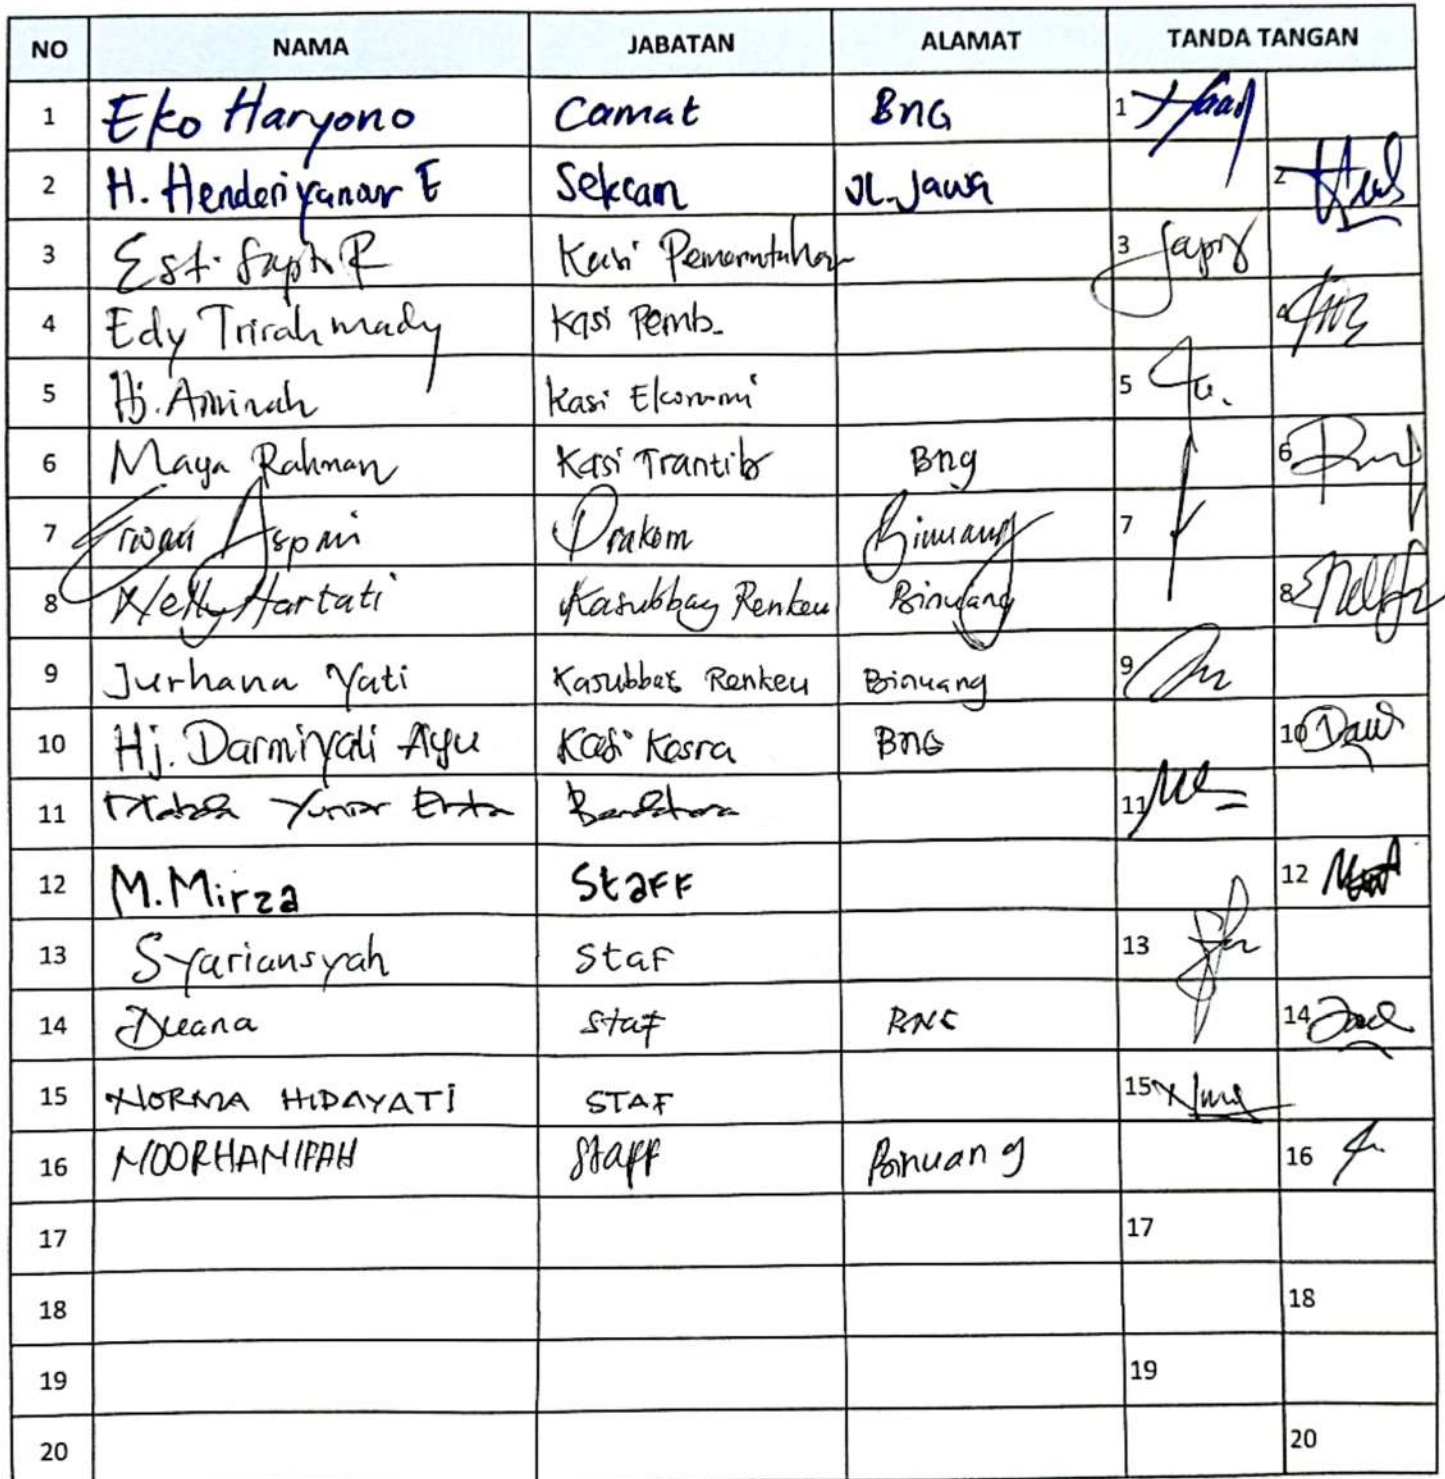 NO NAMA JABATAN ALAMAT TANDA TANGAN
1 Eko Haryono Camat BNG 1
2 H. Henderiyanour E Sekcam Jl. Jawa 2
3 Esti Sapti R Kasi Pemerintahan 3
4 Edy Trirahmady Kasi Pemb. 4
5 Hj. Aminah Kasi Ekonomi 5
6 Maya Rahman Kasi Trantib Bng 6
7 Erwan Aspmi Prakom Binuang 7
8 Nelly Hartati Kasubbag Renkeu Binuang 8
9 Jurhana Yati Kasubbag Renkeu Binuang 9
10 Hj. Darmiyati Ayu Kasi Kesra BNG 10
11 11
12 M. Mirza Staff 12
13 Syariansyah Staf 13
14 Staf BNG 14
15 NORMA HIDAYATI STAF 15
16 NOORHANIFAH Staff Binuang 16
17 17
18 18
19 19
20 20